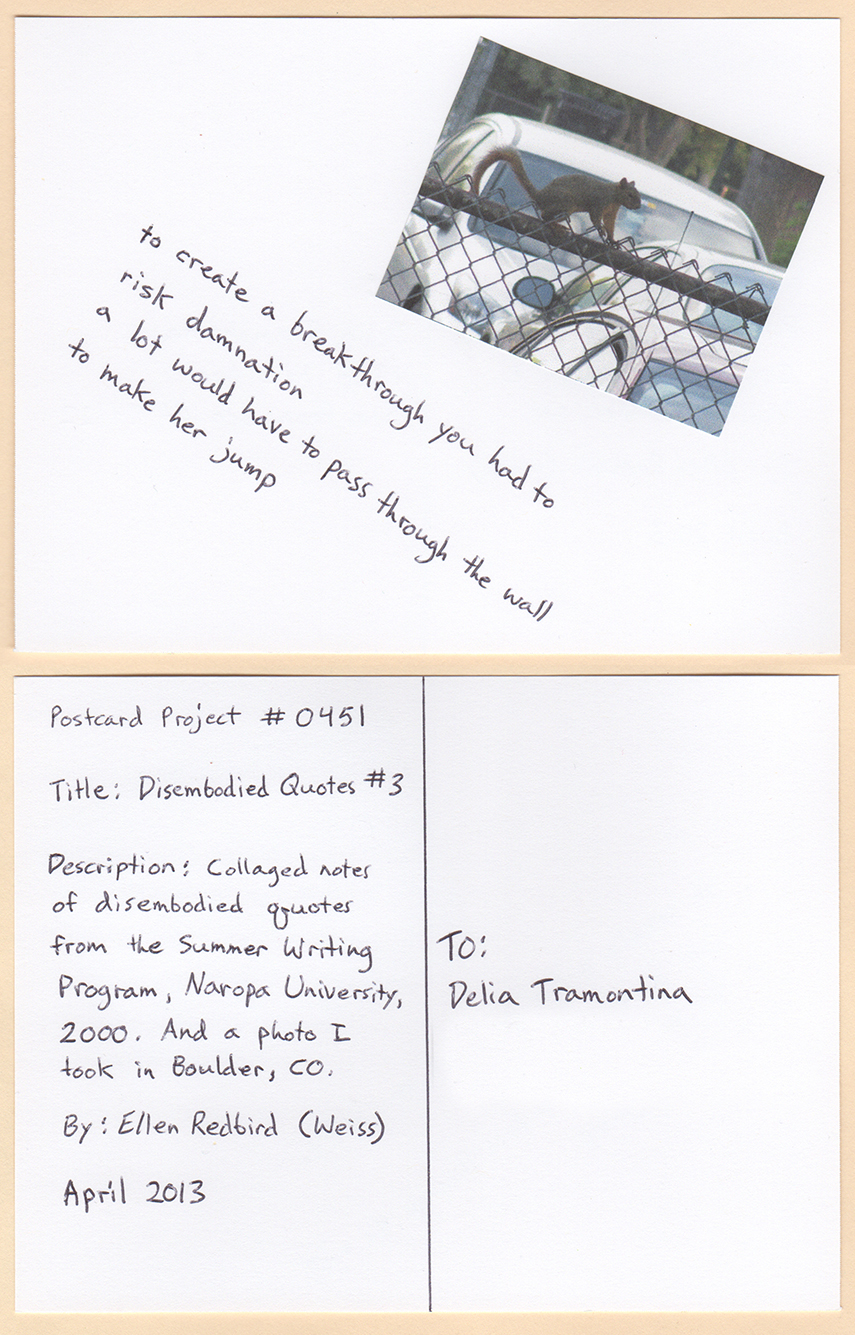 to create a breakthrough you had to
risk damnation
a lot would have to pass through the wall
to make her jump
Postcard Project #0451
Title: Disembodied Quotes #3
Description: Collaged notes
of disembodied quotes
from the Summer Writing
Program, Naropa University,
2000. And a photo I
took in Boulder, CO.
By: Ellen Redbird (Weiss)
April 2013
To:
Delia Tramontina